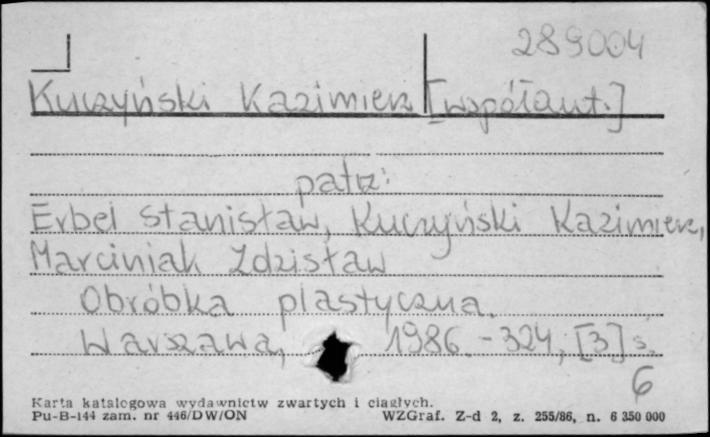 289004
Kuczyński Kazimierz [współaut.]
patrz:
Erbel Stanisław, Kuczyński Kazimierz,
Marciniak Zdzisław
Obróbka plastyczna.
Warszawa, 1986. - 324, [3] s.
6
Karta katalogowa wydawnictw zwartych i ciągłych.
Pu-B-144 zam. nr 446/DW/ON WZGraf. Z-d 2, z. 255/86, n. 6 350 000